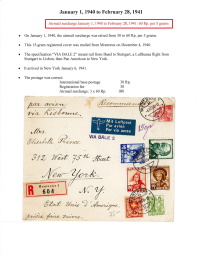 January 1, 1940 to February 28, 1941
Airmail surcharge January 1, 1940 to February 28, 1941 :60 Rp. per 5 grams
On January 1, 1940, the airmail surcharge was raised from 50 to 60 Rp. per 5 grams.
This 15 gram registered cover was mailed from Montreux on December 4, 1940.
The specification "VIA BALE 2" meant rail from Basel to Stuttgart, a Lufthansa flight from
Stuttgart to Lisbon, then Pan American to New York.
It arrived in New York January 6, 1941.
The postage was correct:
International base postage 30 Rp.
Registration fee 30
Airmail surcharge: 3 x 60 Rp. 180
par avion
via Lisbonne.
Recommandé
Mit Luftpost
Par avion
Per via aerea
VIA BALE 2
Mrs.
312 West 75th Street
New-York.
N. Y.
R Montreux 1
États Unis d'Amérique.
prière faire suivre.